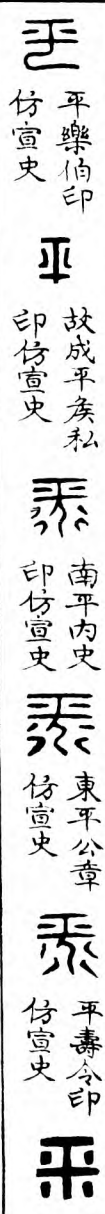 平
平樂伯印
仿宣史
平
故成平矦私
印仿宣史
平
南平内史
印仿宣史
平
東平公章
仿宣史
平
平壽令印
仿宣史
平